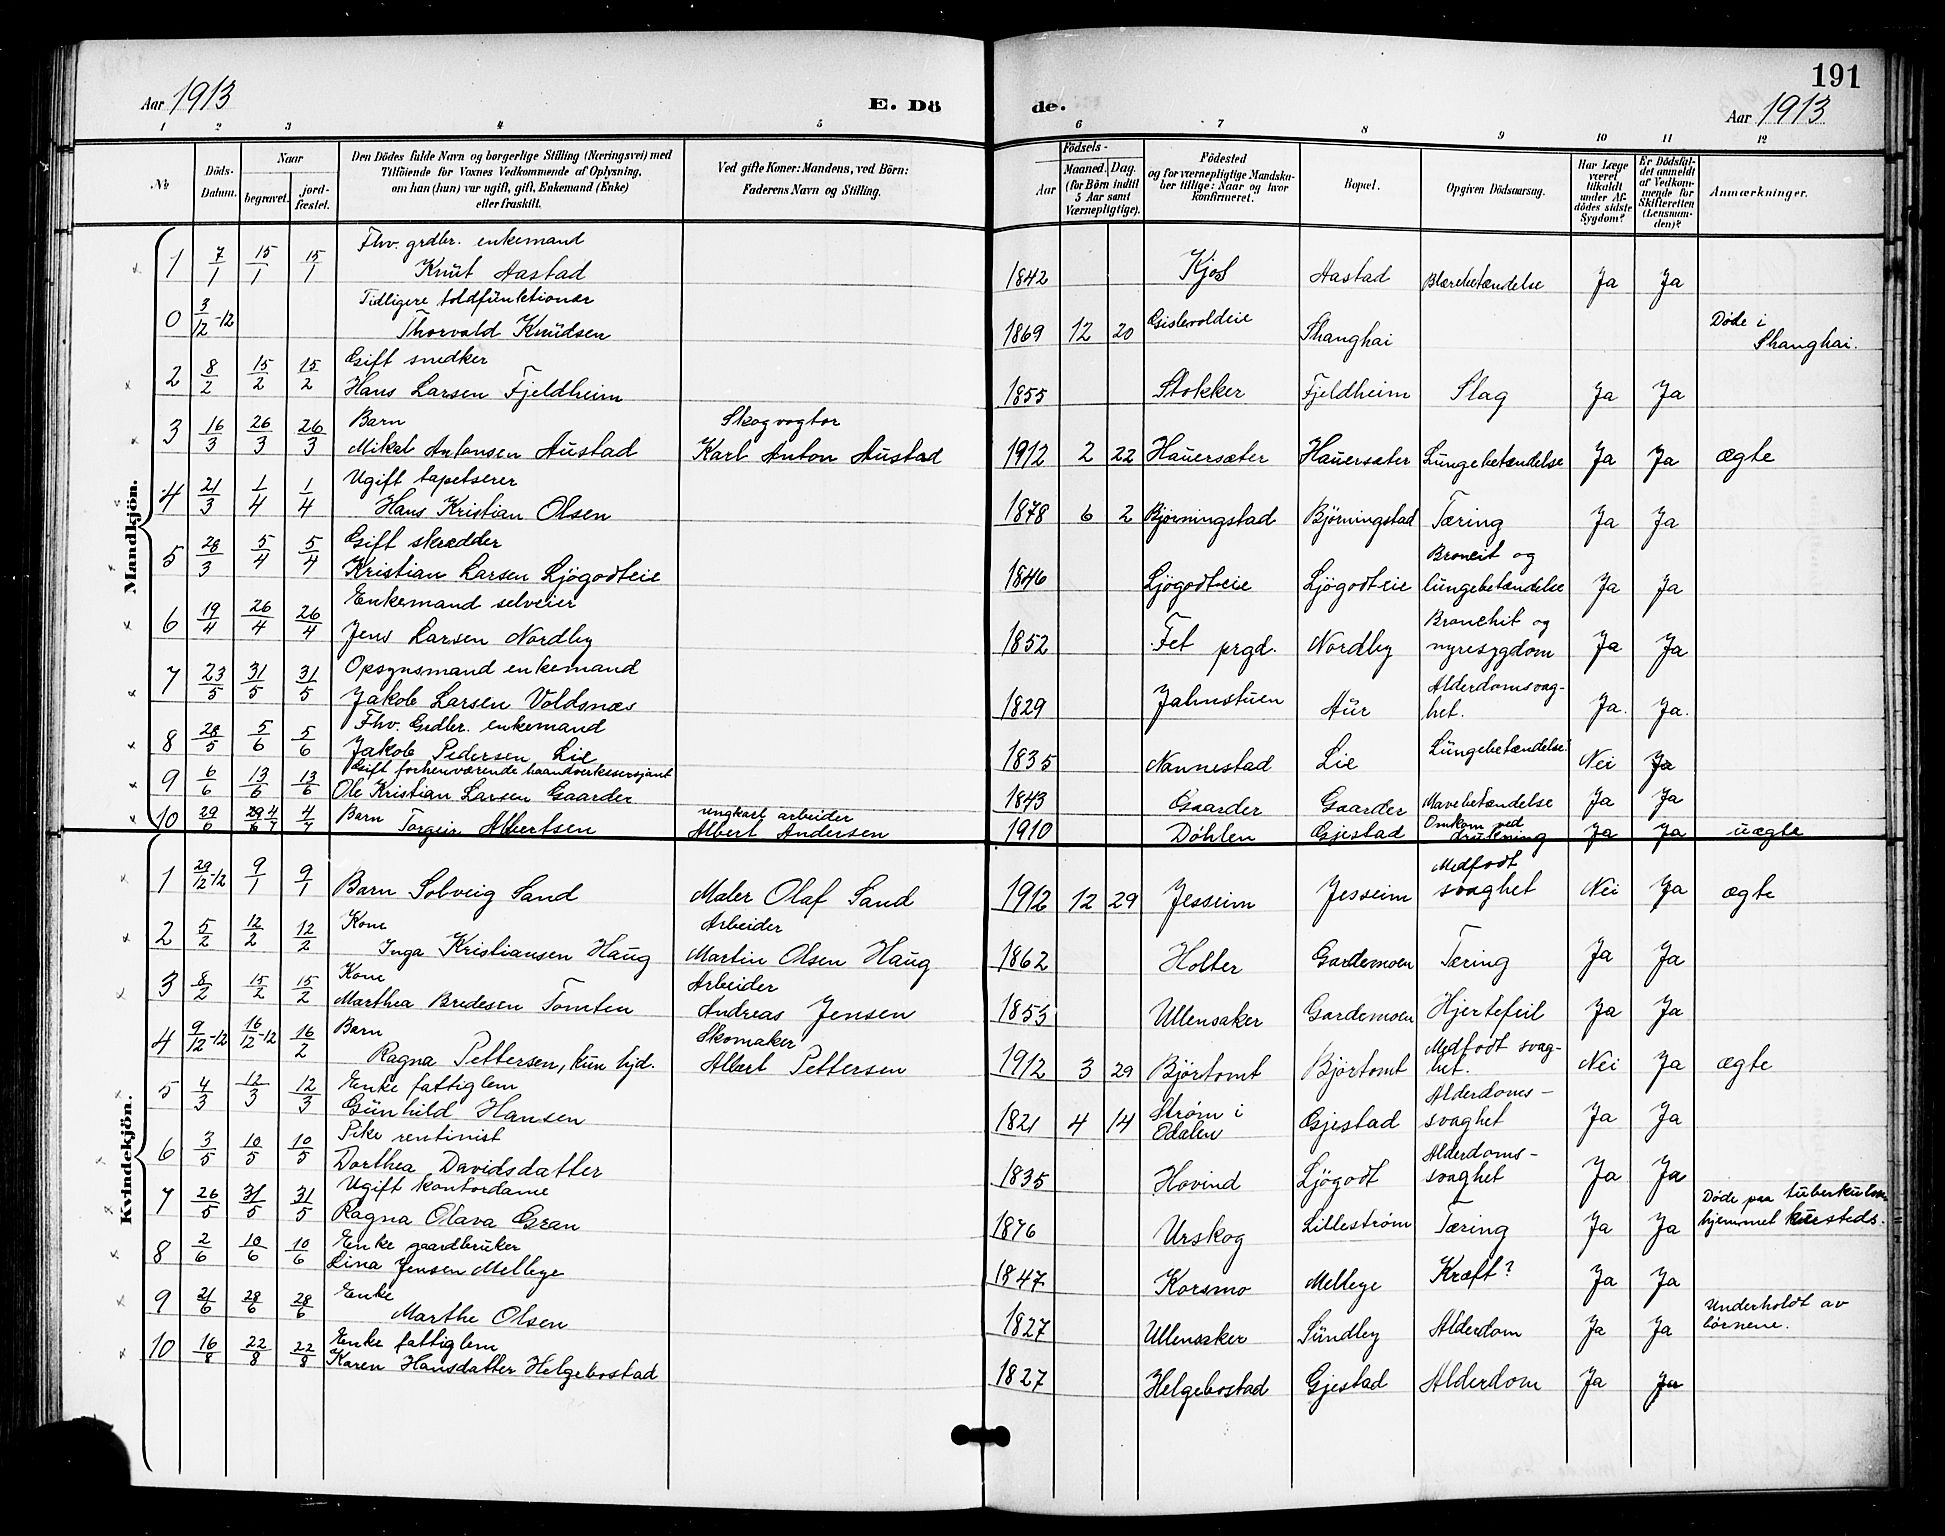 191
Aar 1913
E. Dö
de.
Aar 1913
1 2 3 4 5 6 7 8 9 10 11 12
No
Döds-Datum.
Naar
begravet.
jord-fæstet.
Den Dödes fulde Navn og borgerlige Stilling (Næringsvei) med
Tilföiende for Voxnes Vedkommende af Oplysning,
om han (hun) var ugift, gift, Enkemand (Enke)
eller fraskilt.
Ved gifte Koner: Mandens, ved Börn:
Faderens Navn og Stilling.
Födsels-
Aar
Maaned. Dag.
(for Börn indtil
5 Aar samt
Værnepligtige).
Födested
og for værnepligtige Mandsku-
ber tillige: Naar og hvor
konfirmeret.
Bopæl.
Opgiven Dödsaarsag.
Har Læge
været
tilkaldt
under Af-
dödes sidste
Sygdom?
Er Dödsfal-
det anmeldt
af Vedkom-
mende for
Skifteretten
(Lensman-
den)?
Anmærkninger.
Mandkjön.
1 7/1 15/1 15/1 Fhv. grdbr. enkemand
Knut Aastad 1842 Kjos Aastad Blærebetændelse Ja Ja
0 3/12-12 Tidligere toldfunktionær
Thorvald Knudsen 1869 12 20 Gislevoldeie Shanghai Døde i
Shanghai.
2 8/2 15/2 15/2 Gift snedker
Hans Larsen Fjeldheim 1855 Stokker Fjeldheim Slag Ja Ja
3 16/3 26/3 26/3 Barn Skogvogter
Mikal Antonsen Austad Karl Anton Austad 1912 2 22 Hauersæter Hauersæter Lungebetændelse Ja Ja ægte
4 21/3 1/4 1/4 Ugift tapetserer
Hans Kristian Olsen 1878 6 2 Bjørningstad Bjørningstad Tæring Ja Ja
5 28/3 5/4 5/4 Gift skrædder Broncit og
Kristian Larsen Ljögodteie 1846 Ljögodteie Ljögodteie lungebetændelse Ja Ja
6 19/4 26/4 26/4 Enkemand selveier Bronchit og
Jens Larsen Nordby 1852 Fet prgd. Nordby nyresygdom Ja Ja
7 23/5 31/5 31/5 Opsynsmand enkemand Alderdomsvag-
Jakob Larsen Voldsnæs 1829 Jahnstuen Aur het. Ja. Ja.
8 28/5 5/6 5/6 Fhv. Grdbr. enkemand
Jakob Pedersen Lie 1835 Nannestad Lie Lungebetændelse Nei Ja
9 6/6 13/6 13/6 Gift forhenværende haandverkssersjant
Ole Kristian Larsen Gaarder 1843 Gaarder Gaarder Mavebetændelse Ja Ja
10 29/6 4/7 4/7 Barn ungkarl arbeider Omkom ved
Torgeir Albertsen Albert Andersen 1910 Døhlen Gjestad drukning Ja Ja uægte
Kvindekjön.
1 29/12-12 9/1 9/1 Medfødt
Barn Solveig Sand Maler Olaf Sand 1912 12 29 Jesseim Jesseim svaghet Nei Ja ægte
2 5/2 12/2 12/2 Kone Arbeider
Inga Kristiansen Haug Martin Olsen Haug 1862 Holter Gardemoen Tæring Ja Ja
3 8/2 15/2 15/2 Kone Arbeider
Marthea Bredesen Tomten Andreas Jensen 1853 Ullensaker Gardemoen Hjertefeil Ja Ja
4 9/12-12 16/12-12 16/2 Barn Skomaker Medfødt svag-
Ragna Pettersen, kun hjd. Albert Pettersen 1912 3 29 Björtomt Björtomt het. Nei Ja ægte
5 4/3 12/3 12/3 Enke fattiglem Strøm i Alderdoms-
Gunhild Hansen 1821 4 14 Odalen Gjestad svaghet Ja Ja
6 3/5 10/5 10/5 Pike rentinist Alderdoms-
Dorthea Davidsdatter 1835 Hovind Ljögodt svaghet Ja Ja
7 26/5 31/5 31/5 Ugift kontordame Døde paa tuberkulose
Ragna Olava Gran 1876 Urskog Lillestrøm Tæring Ja Ja hjemmet
8 2/6 10/6 10/6 Enke gaardbruker
Lina Jensen Mellege 1847 Korsmo Mellege Kræft? Ja Ja
9 21/6 28/6 28/6 Enke Underholdt av
Marthe Olsen 1827 Ullensaker Sundby Alderdom Ja Ja børnene.
10 16/8 22/8 22/8 Enke fattiglem
Karen Hansdatter Helgebostad 1827 Helgebostad Gjestad Alderdom Ja Ja